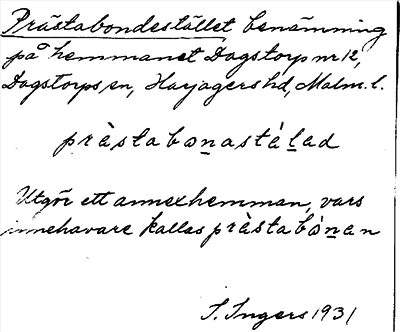 Prästabondestället benämning
på hemmanet Dagstorp nr 12,
Dagstorps sn, Harjagers hd, Malm. l.
prästabonastälad
Utgör ett annexhemman, vars
innehavare kallas prästabonan
I. Ingers 1931